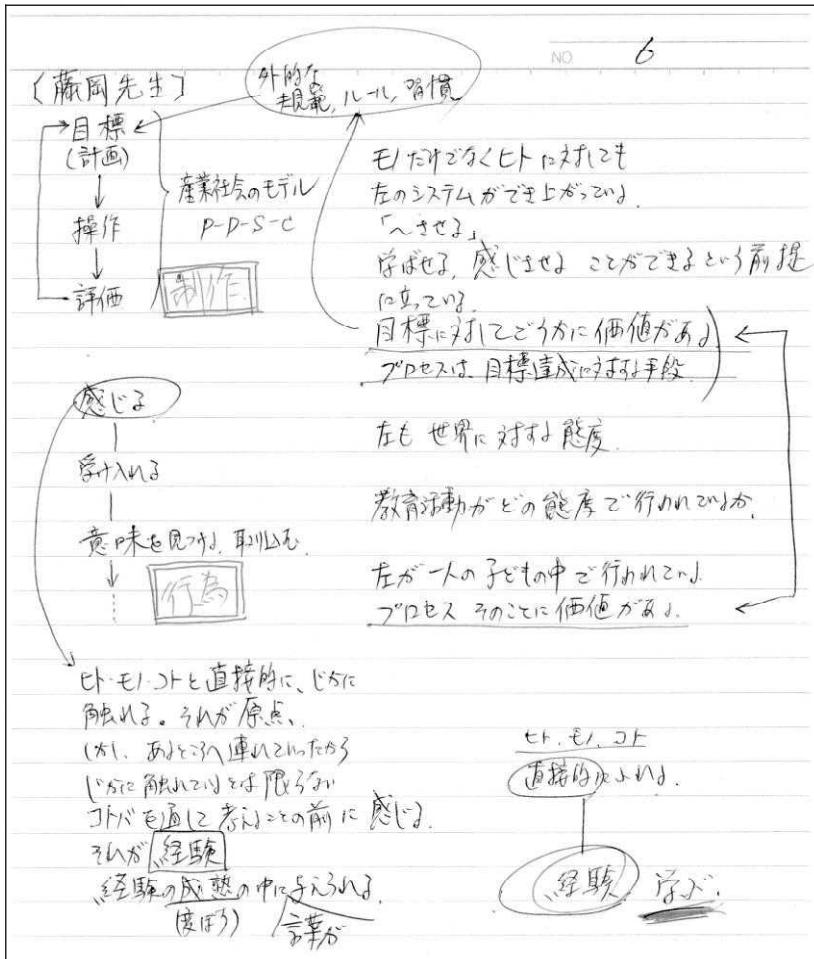 NO. 6
〔藤岡先生〕
外的な
規範, ルール, 習慣
目標
(計画)
操作
評価
産業社会のモデル
P-D-S-C
制作
モノだけでなくヒトに対しても
左のシステムができ上がっている.
「〜させる」
学ばせる, 感じさせる ことができるという前提
に立っている.
目標に対してどうかに価値がある
プロセスは, 目標達成に対する手段
感じる
受け入れる
意味を見つける, 取り込む.
行為
左も 世界に対する態度.
教育活動がどの態度で行われているか.
左が一人の子どもの中で行われている.
プロセス そのことに価値がある.
ヒト・モノ・コトと直接的に、じかに
触れる。それが原点、
しかし、あるところへ連れていったから
じかに触れているとは限らない
コトバを通して考えることの前に感じる.
それが 経験
経験の成熟の中に与えられる.
言葉が
ヒト, モノ, コト
直接的にふれる.
経験 学ぶ.